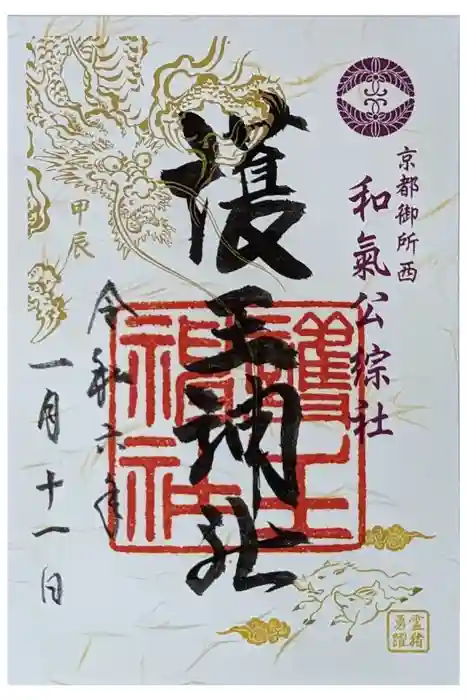 京都御所西
和氣公綜社
護王神社
護王神社
甲辰
令和六年
一月十一日
霊猪
勇躍